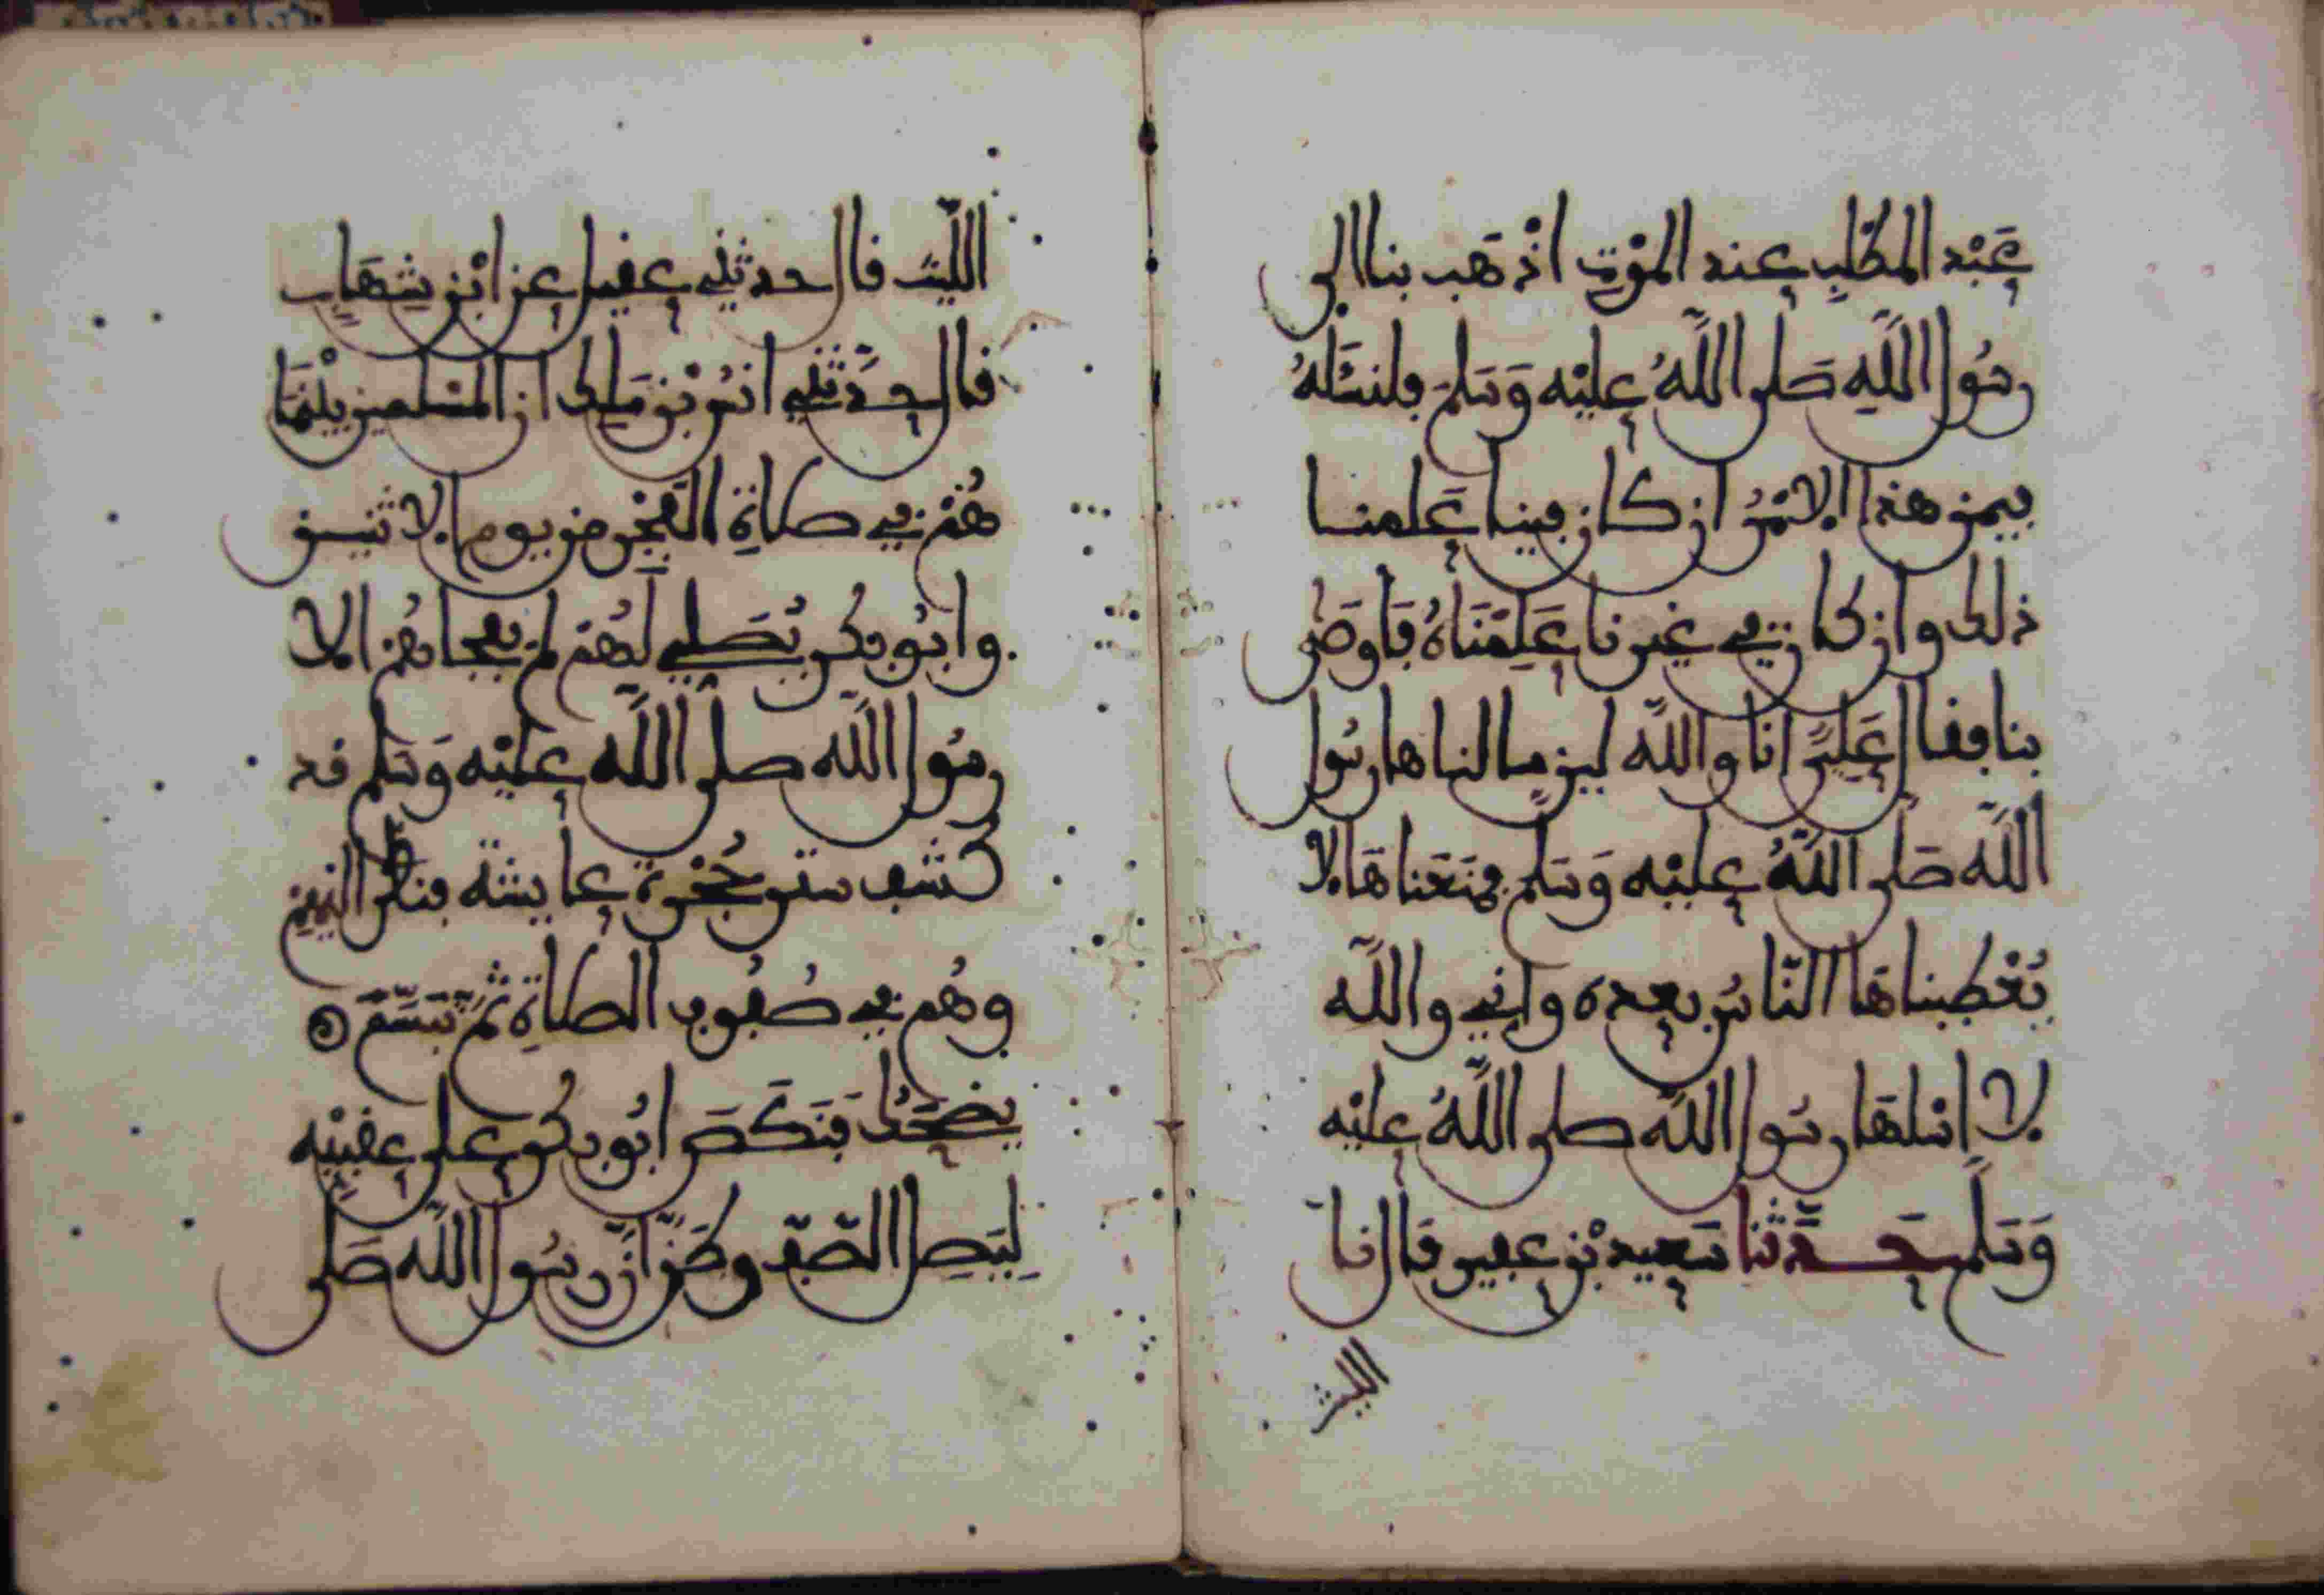 عَبْد المطّلِبِ عند المَوْتِ اذْهَب بنا الى
رسُول اللّهِ صَلى اللّهُ عليْه وَسَلمَ فلنسْئَلهُ
فيمن هذا الامْرُ ان كان فينا عَلمنا
ذلك وان كان في غيرنا عَلِمْنَاهُ فَاوصَى
بنا فقال عَلِيّ انا واللّه لين سالناها رسُول
اللّه صَلى اللّهُ عليْه وَسَلم فمَنَعَناهَا لا
يُعْطيناهَا النّاسُ بعده واني واللّه
لا اسْلهَا رسُول اللّه صلى اللّهُ عليْه
وَسَلم حَدّثنا سَعيد بْن عفير قال نا
الليث
اللّيْث قال حدثني عقيل عن ابْن شِهَابِ
قال حدّثَني انسُ بْن مَالِك ان المسْلمين بيْنَمَا
هُمْ في صلاةِ الفَجْر من يوم الاثنين
وابُو بكر يُصَلي لهُمْ لمْ يفجاهُمْ الا
رسُول اللّه صلى اللّه عليْه وَسَلم قد
كشف ستر حُجْرة عايشة فنظر اليْهمْ
وهُم في صُفُوف الصلاةِ ثمّ تبَسّمَ
يضحَكُ فنَكَصَ ابُو بكر على عقبيْه
لِيَصِل الصّفّ وظنّ انّ رسُول اللّه صَلى